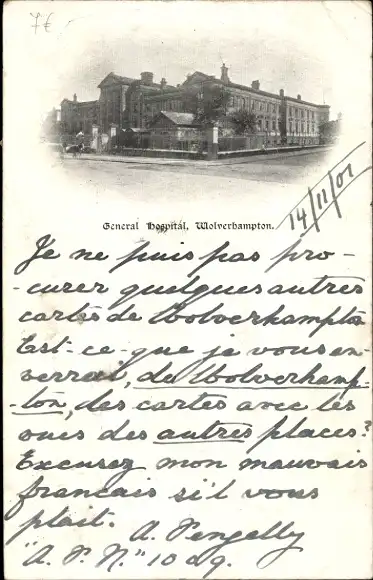 7€
General Hospital, Wolverhampton.
14/11/01
Je ne puis pas pro-
-curer quelques autres
cartes de Wolverhampton
Est-ce-que je vous en-
verrai, de Wolverhamp-
-ton, des cartes avec les
vues des autres places?
Excusez mon mauvais
francais si'l vous
plait. A. Pengelly
"A. P. N." 1009.